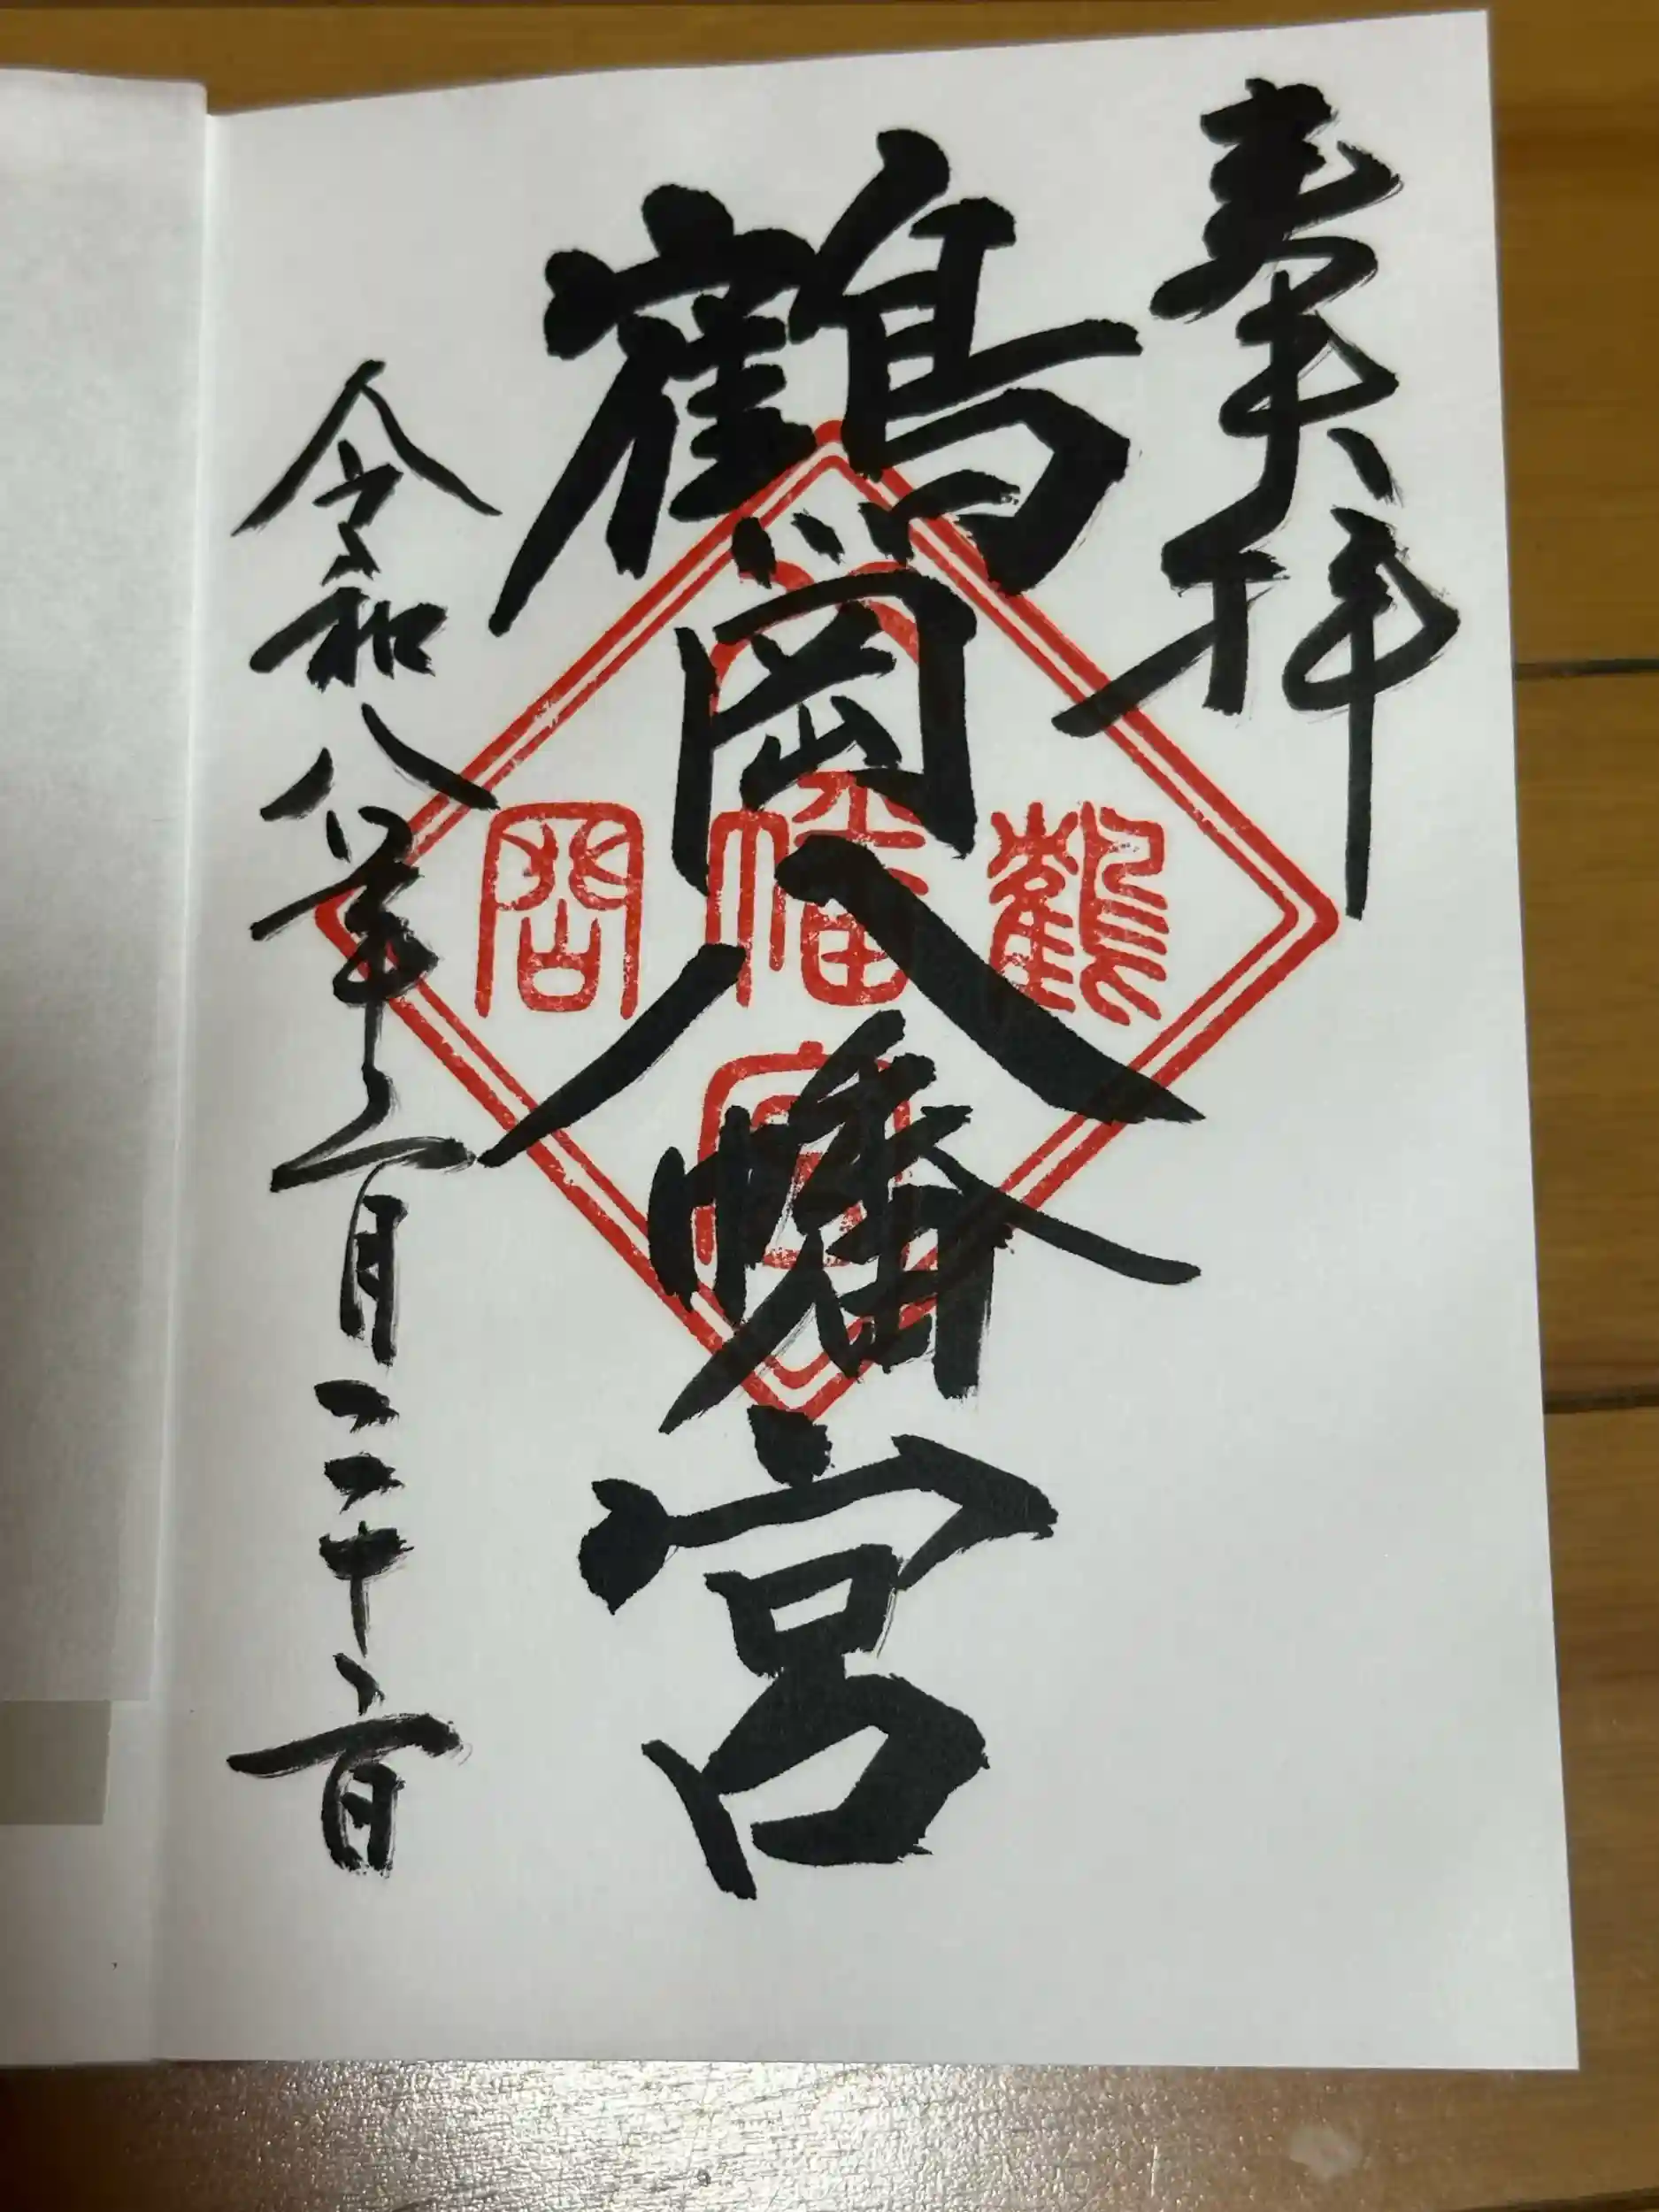 奉拝
鶴岡八幡宮
鶴岡八幡宮
令和八年二月二十六日